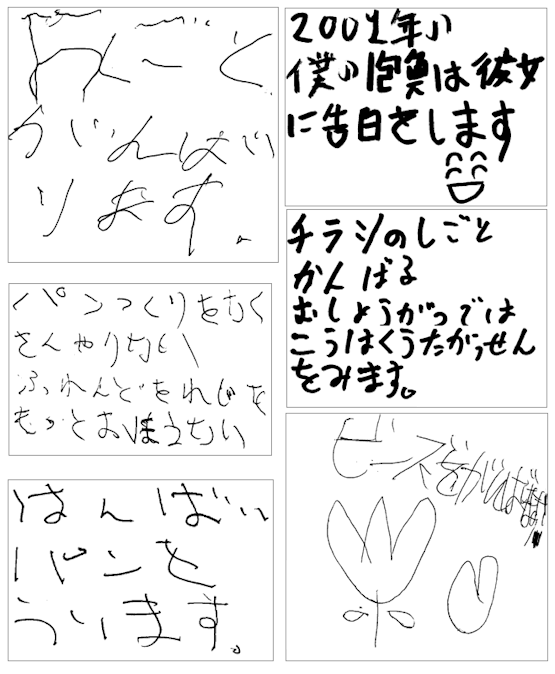 しごと
がんばり
ます。
パンつくりをたく
さんやりたい
ふれんどをれじを
もっとおぼえたい
はんばい
パンを
うります。
2001年の
僕の抱負は彼女
に告白をします
チラシのしごと
かんばる
おしょうがつでは
こうはくうたがっせん
をみます。
ビーズをがんば